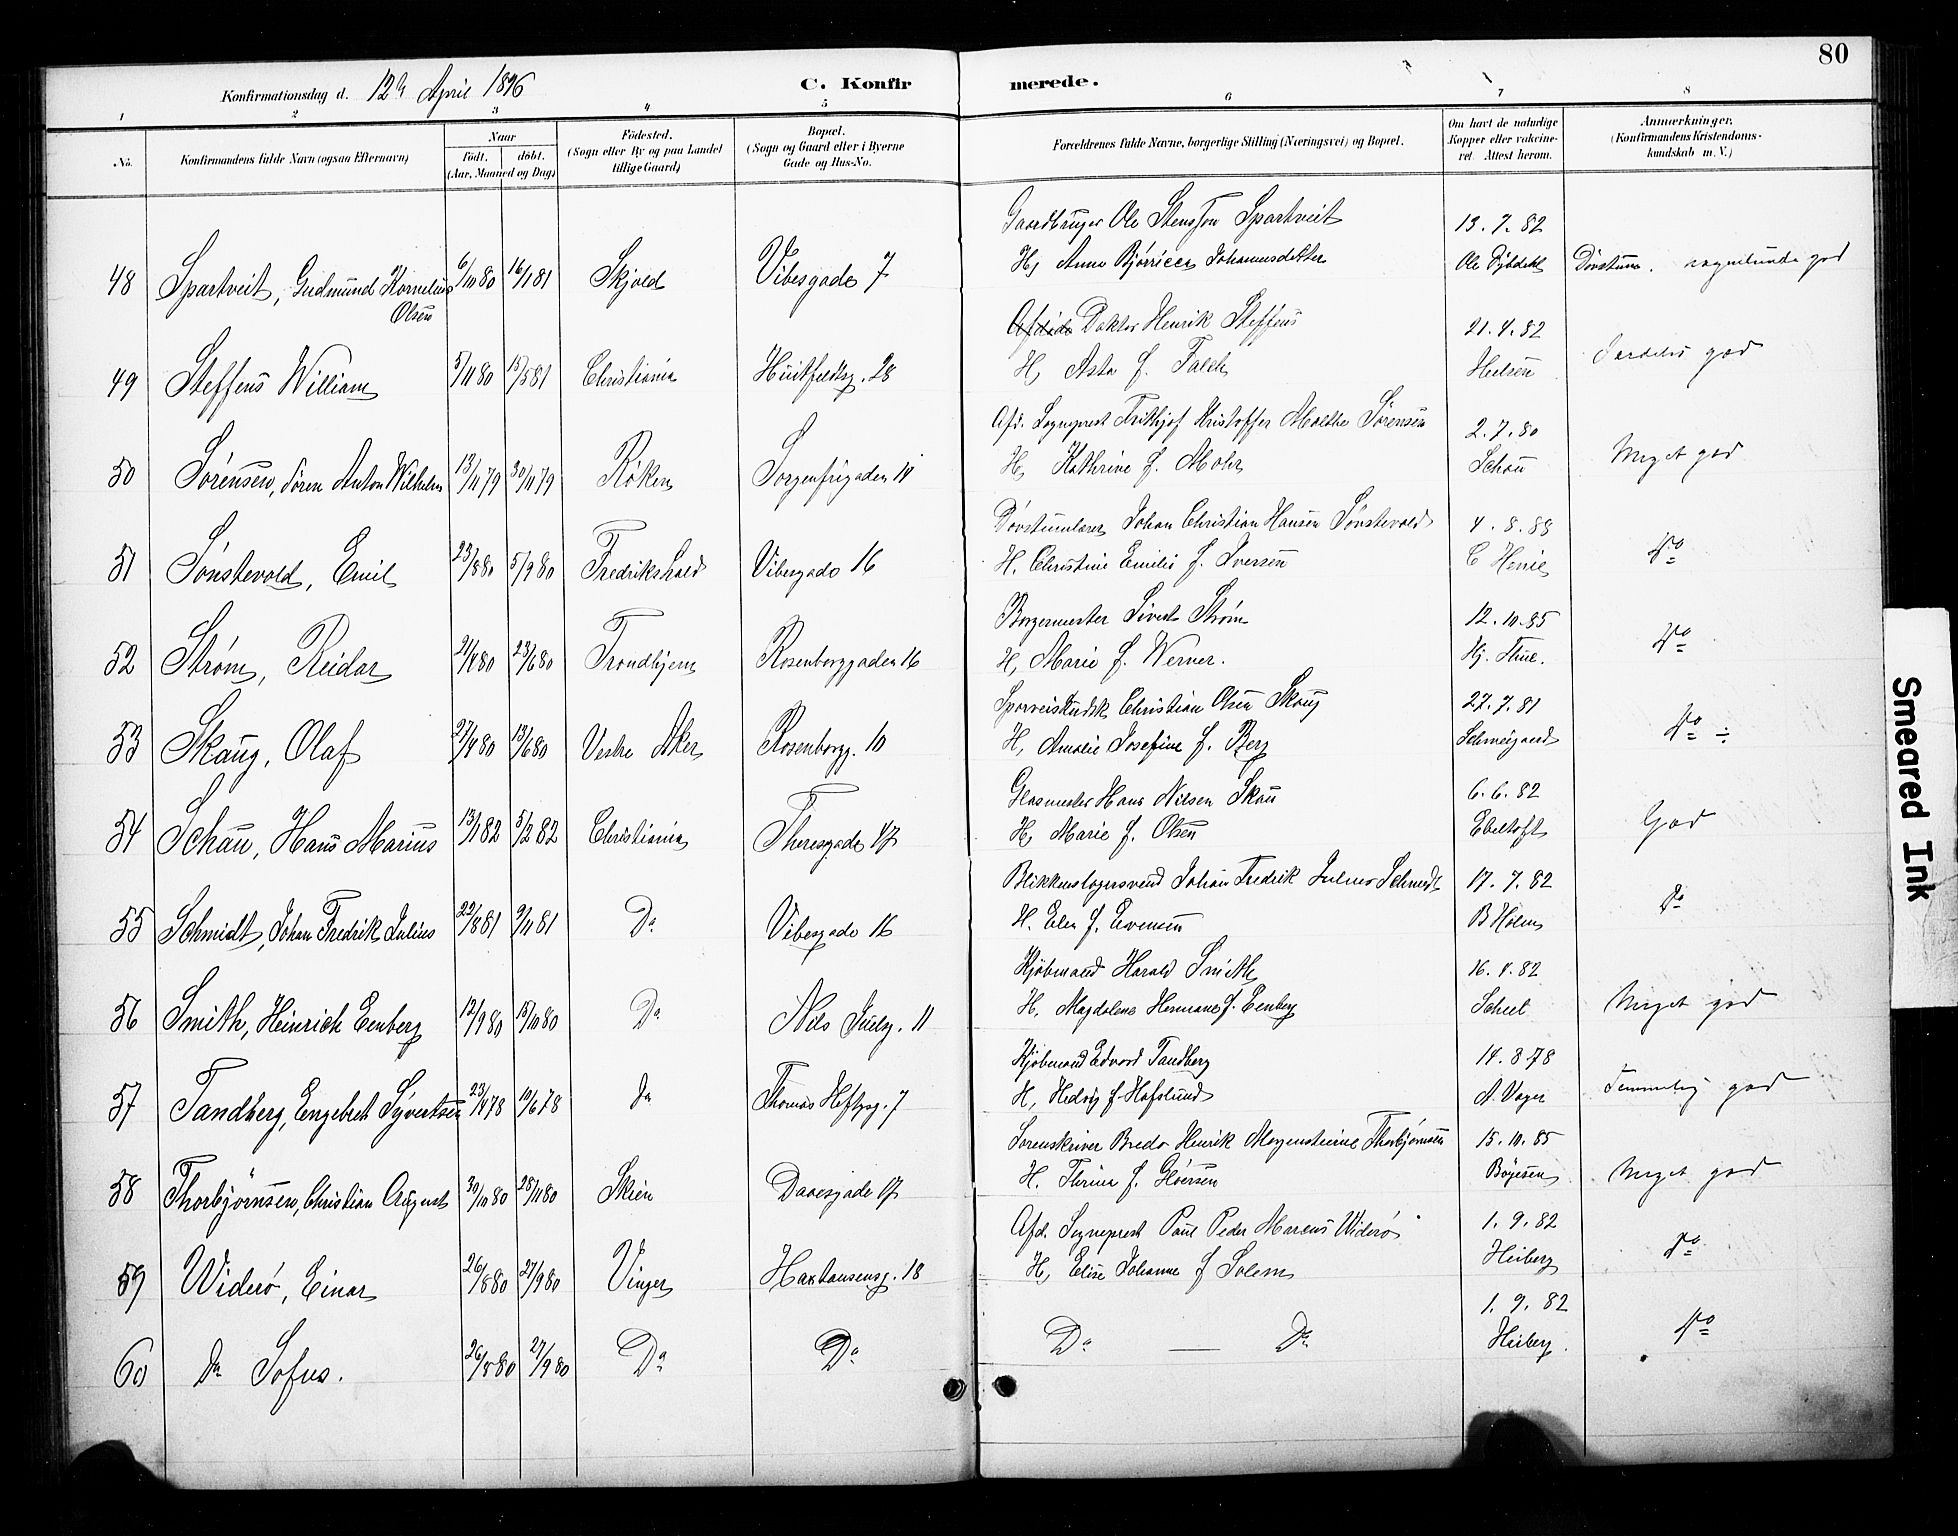 80
Konfirmationsdag d. 12te April 1896
C. Konfirmerede.
1 2 3 4 5 6 7 8
No. Konfirmandens fulde Navn (ogsaa Efternavn) Naar Födt. döbt. (Aar, Maaned og Dag) Födested. (Sogn eller By og paa Landet tillige Gaard) Bopæl. (Sogn og Gaard eller i Byerne Gade og Hus-No. Forældrenes fulde Navne, borgerlige Stilling (Næringsvei) og Bopæl. Om havt de naturlige Kopper eller vakcineret. Attest herom. Anmærkninger. (Konfirmandens Kristendomskundskab m. V.)
Gaardbruger Ole Stensson Spartveit 13. 7. 82
48 Spartveit, Gudmund Kornelius Olsen 6/10 80 16/1 81 Skjold Vibesgade 7 H, Anna Johannesdatter Døvstum. god
Afdøde Doktor Henrik Steffens 21. 4. 82
49 Steffens William 5/11 80 15/5 81 Christiania Huitfeldtsg. 28 H, Asta f. Falch god
Afd. Sogneprest Frithjof Kristoffer Molthe Sørensen 2. 7. 80
50 Sørensen, Sören Anton Wilhelm 13/11 79 30/11 79 Røken Sorgenfrigaden 11 H, Kathrine f. Mohr Schou Meget god
Døvstumlærer Johan Christian Hansen Sønstevold 4. 8. 88
51 Sønstevold, Emil 23/8 80 5/9 80 Fredrikshald Vibesgade 16 H. Christine Emilie f. Iversen C Do
Borgermester Sivert Strøm 12. 10. 85
52 Strøm, Reidar 21/4 80 23/6 80 Trondhjem Rosenborggaden 16 H, Marie f. Werner. Hj. Thue. Do
Sporveiskudsk Christian Olsen Skaug 27. 7. 81
53 Skaug, Olaf 27/4 80 13/6 80 Vestre Aker Rosenborgg. 10 H, Amalie Josefine f. Berg Schweigaard Do ÷
Glasmester Hans Nilsen Skau 6. 6. 82
54 Schau, Hans Marius 13/1 82 5/2 82 Christiania Theresgade 17 H, Marie f. Olsen Ebeltoft God
Blikkenslagersvend Johan Fredrik Julius Schmidt 17. 7. 82
55 Schmidt, Johan Fredrik Julius 22/8 81 9/11 81 Do Vibesgade 16 H. Elen f. Evensen B Holm Do
Kjøbmand Harald Smith 16. 8. 82
56 Smith, Heinrich Eenberg 12/9 80 15/10 80 Do Nils Juelsg. 11 H, Magdalene Hermane f. Eenberg Scheel Meget god
Kjøbmand Edvard Tandberg 14. 8 78
57 Tandberg, Engebret Syvertsen 23/4 78 10/6 78 Do Thomas Heftyesg. 7 H, Hedvig f. Hafslund Temmelig god
Sorenskriver Bredo Henrik Morgenstierne Thorbjørnsen 15. 10. 85
58 Thorbjörnsen, Christian August 30/10 80 28/11 80 Skien Daaesgade 17 H. f. Gløersen Bøyesen Meget god
Afd. Sogneprest Paul Peder Marcus Widerø 1. 9. 82
59 Widerö, Einar 26/8 80 27/9 80 Vinger Haxthausensg. 18 H, Elise Johanne f Solem Heiberg Do
1. 9. 82
60 Do Sofus. 26/8 80 27/9 80 Do Do Do — Do Heiberg. Do
Smeared Ink